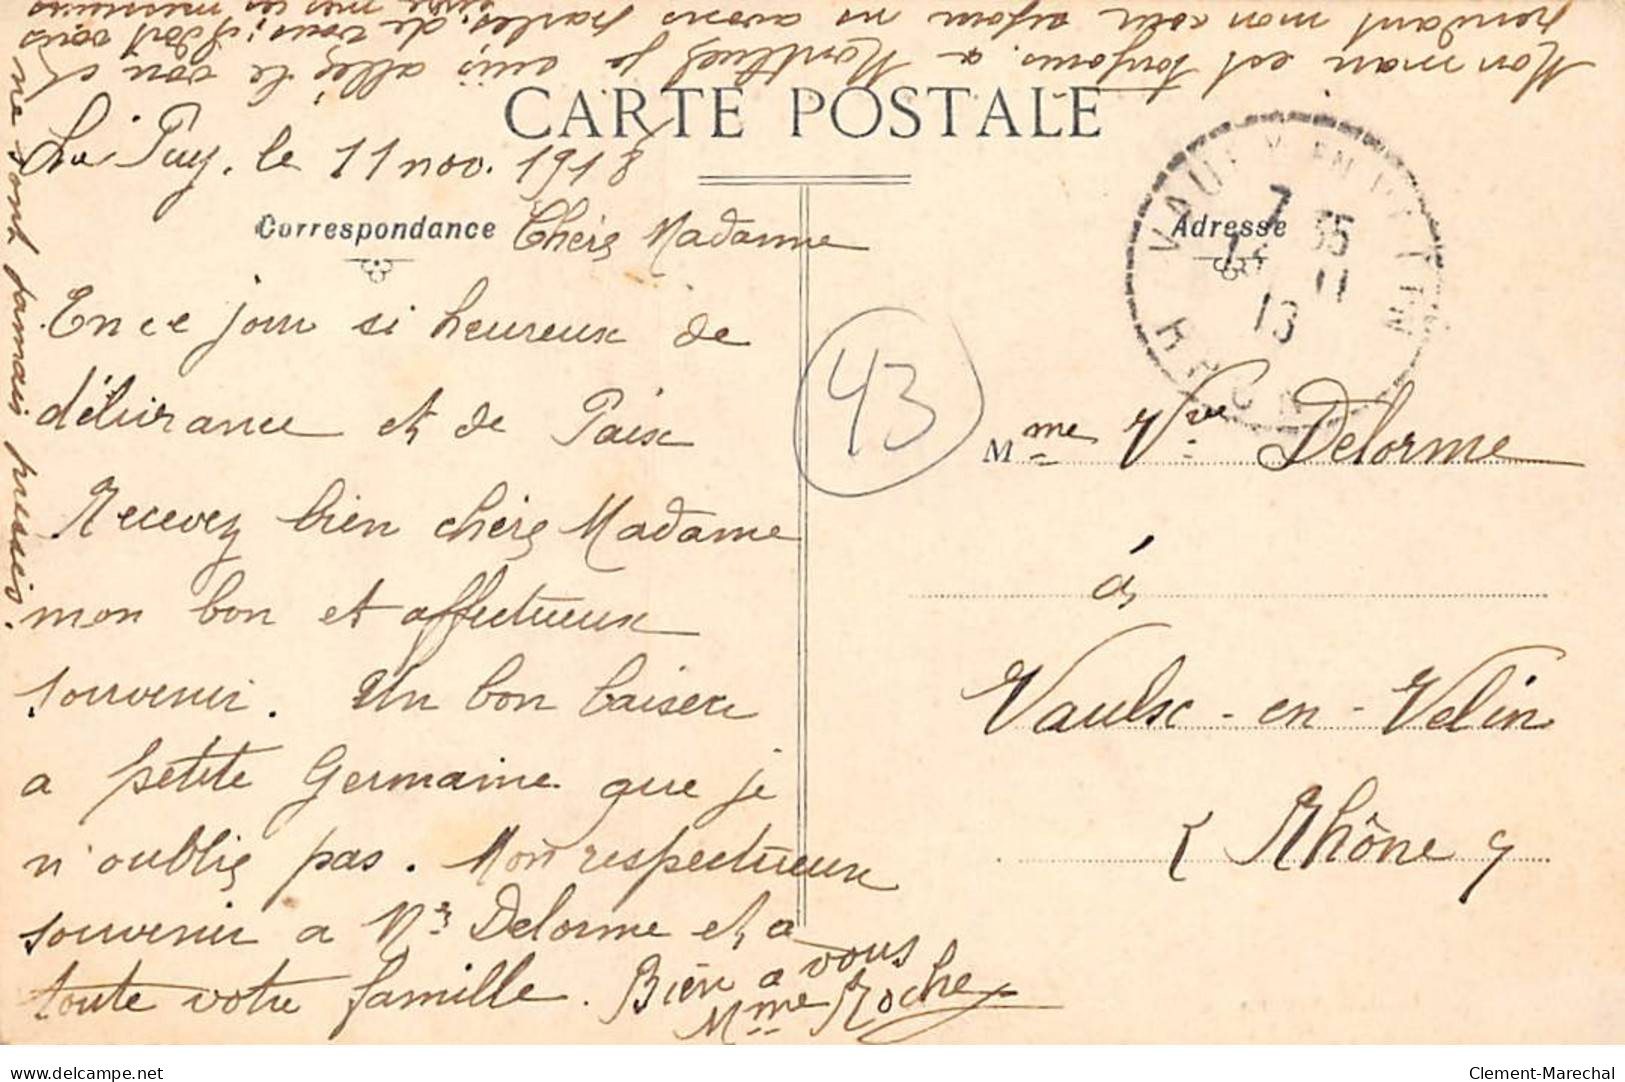 CARTE POSTALE
Le Puy. le 11 nov. 1918
Correspondance
Chère Madame
En ce jour si heureux de
délivrance et de Paix
Recevez bien chère Madame
mon bon et affectueux
souvenir. Un bon baiser
a petite Germaine que je
n'oublie pas. Mon respectueux
souvenir a Mr Delorme et a
toute votre famille. Bien a vous
Mme Roche
Mon mari est toujours a Montluel je suis allée le voir et
pendant mon séjour ns avons parlés de vous; dont vous
ne sont jamais pressés.
43
Adresse
VAULX EN VELIN
7 35
11
RHONE
Mme Vve Delorme
à
Vaulx-en-Velin
(Rhône)
delcampe.net
Clement-Marechal